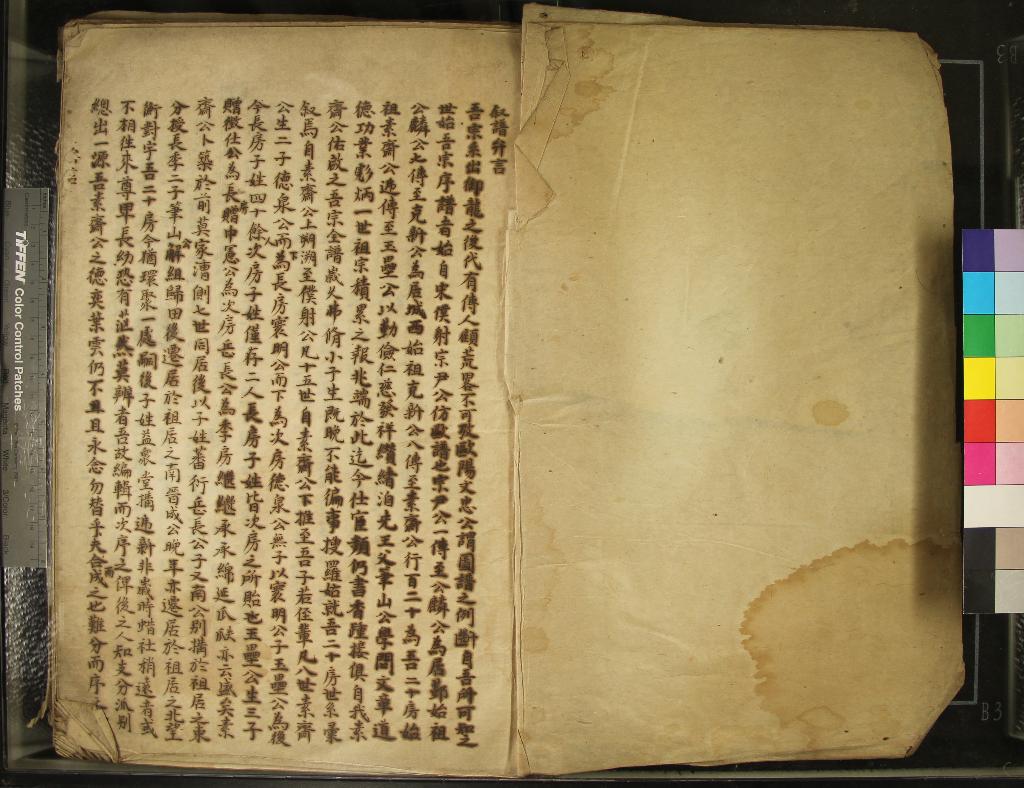 叙譜弁言
吾宗系出御龍之後代有傳人顧荒畧不可攷歐陽文忠公謂圖譜之例斷自吾所可知之
世始吾宗序譜者始自宋僕射宗尹公仿歐譜也宗尹公一傳至公麟公為居鄞始祖
公麟公七傳至克新公為居城西始祖克新公八傳至素齋公行百二十為吾二十房始
祖素齋公遞傳至玉壘公以勤儉仁慈發祥纘緒洎先王父筆山公學問文章道
德功業彪炳一世祖宗積累之報兆端於此迄今仕宦頻仍書香踵接俱自我素
齋公佑啟之吾宗全譜歲久弗脩小子生既晚不能徧事搜羅姑就吾二十房世系彙
叙焉自素齋公上朔溯至僕射公凡十五世自素齋公下推至吾子若侄輩凡八世素齋
公生二子德泉公而下為長房寰明公而下為次房德泉公無子以寰明公子玉壘公為後
今長房子姓四十餘人次房子姓僅存二人長房子姓皆次房之所貽也玉壘公生三子
贈徵仕公為長房贈中憲公為次房岳長公為季房繼繼承承綿延瓜瓞亦云盛矣素
齋公卜築於前莫家漕側七世同居後以子姓蕃衍岳長公子又南公别搆於祖居之東
分授長季二子筆山公解組歸田後遷居於祖居之南晋成公晚年亦遷居於祖居之北望
衡對宇吾二十房今猶環聚一處嗣後子姓益衆堂搆遞新非歲時蜡社稍遠者或
不相往來尊卑長幼恐有茫然莫辨者吾故編輯而次序之俾後之人知支分派别
總出一源吾素齋公之德奕葉雲仍不且且永念勿替乎夫合而成之也難分而序之